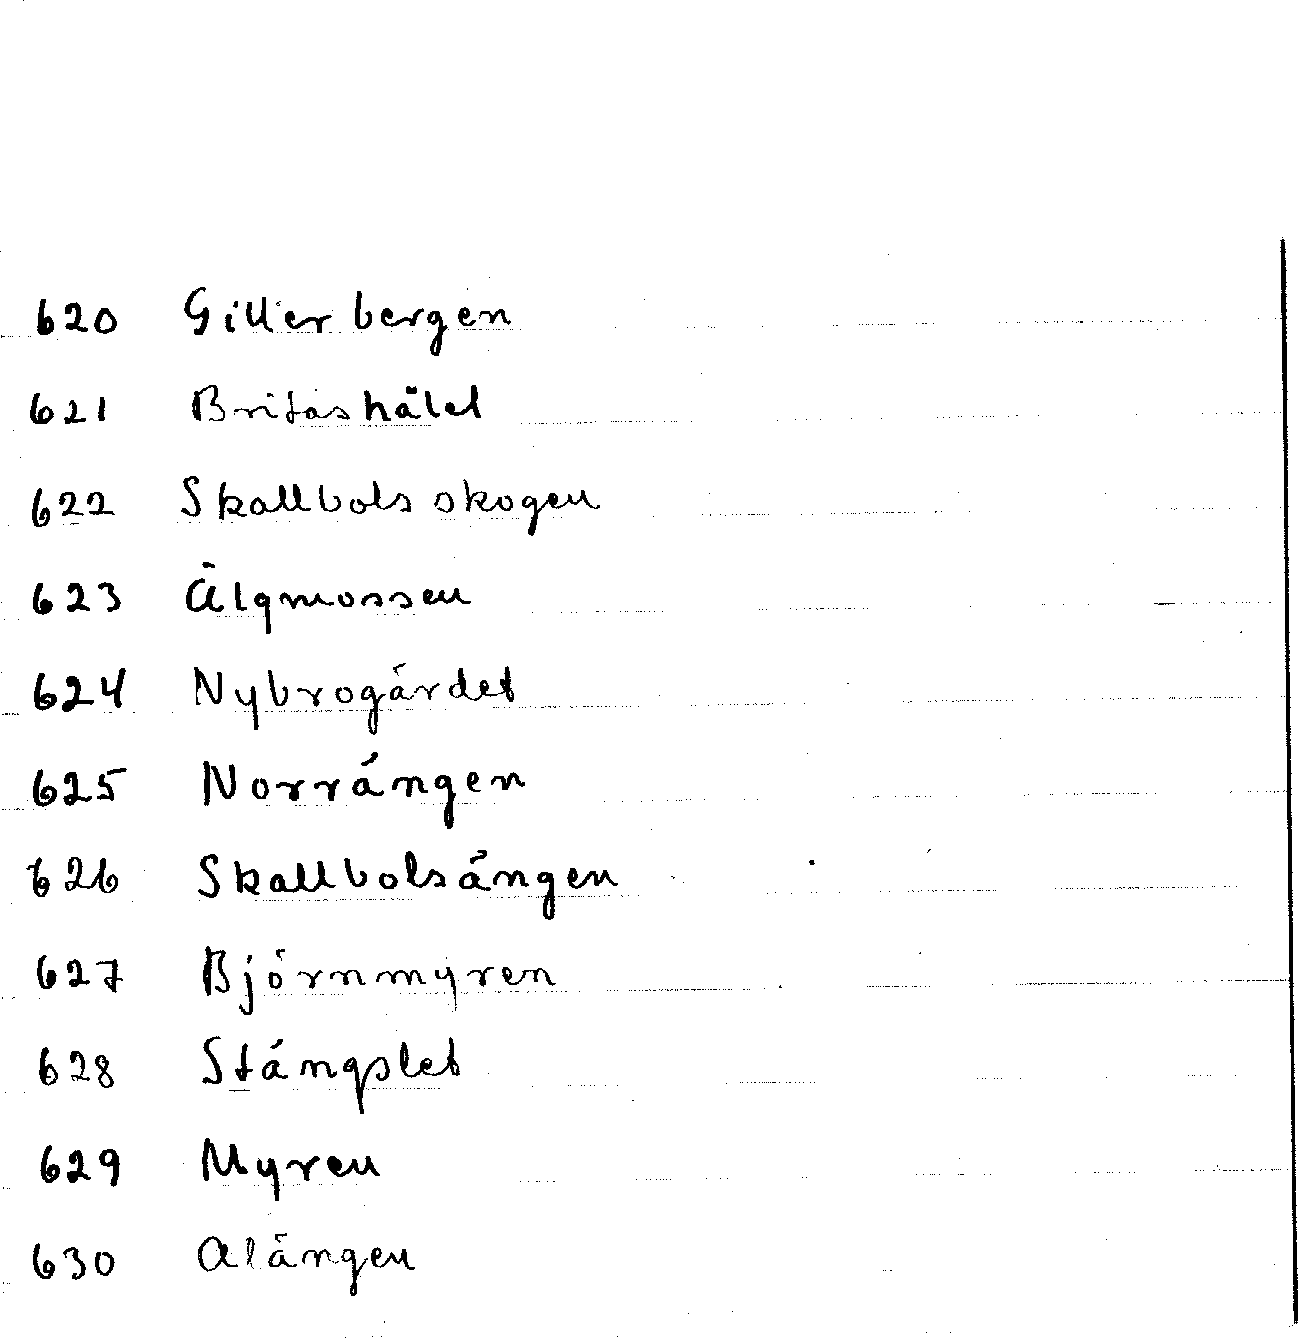 620 Gillerbergen
621 Britashålet
622 Skallbolsskogen
623 Älgmossen
624 Nybrogärdet
625 Norrängen
626 Skallbolsängen
627 Björnmyren
628 Stängslet
629 Myren
630 Alängen